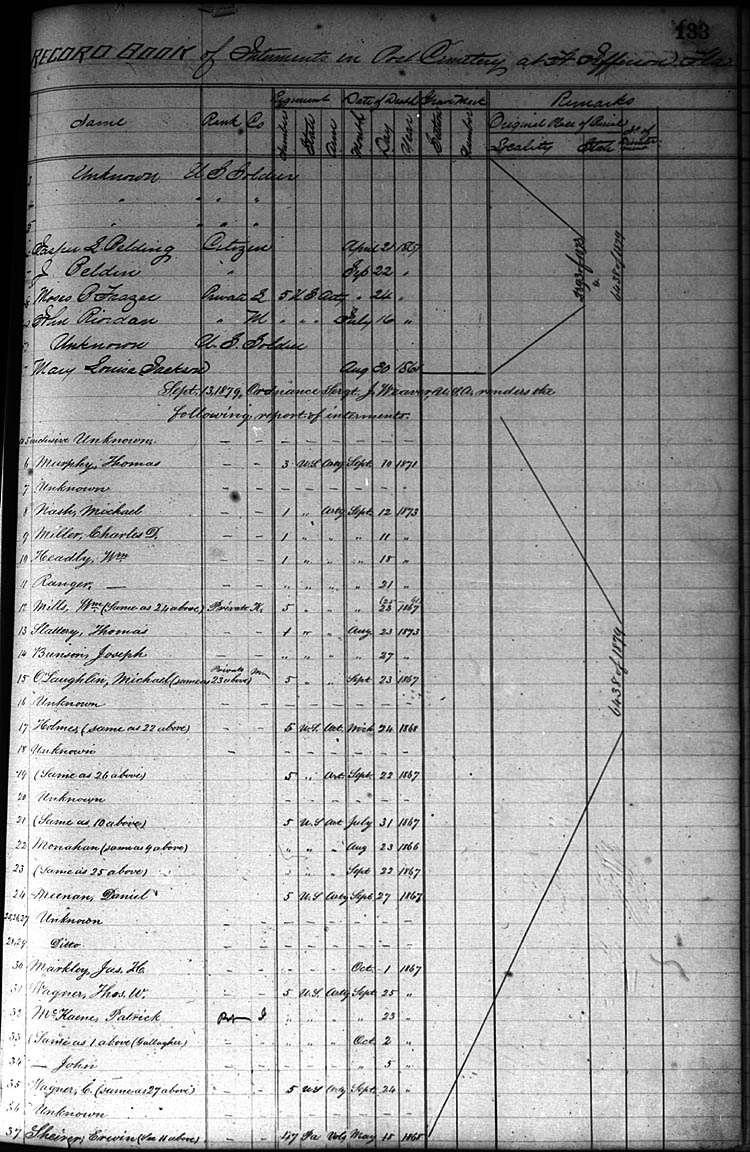 133
RECORD BOOK of Interments in Post Cemetery at Ft Jefferson, Fla.
Regiment Date of Death Grave Mark Remarks
Name Rank Co Number State Arm Month Day Year Section Number Original Place of Burial
Locality State No of Disinterment
3 Unknown U S Soldier
" " " "
5 " " " "
Jasper L Pelding Citizen April 21 1867
J Pelden " Sep 22 "
Moses P Frazer Private L 5 U S Art " 24 "
John Riordan " M " " " July 16 "
Unknown U S Soldier
Mary Louisa Jackson Aug 30 1868
6438 of 1879
Sept. 13, 1879, Ordnance Sergt. J. Weaver, U.S.A. renders the
following report of interments.
inclusive Unknown, – – – – – – – –
6 Murphy, Thomas – – 3 U.S Arty Sept. 10 1871
7 Unknown – – – – – – – –
8 Nash, Michael – – 1 " Arty Sept. 12 1873
9 Miller, Charles D. – – 1 " " " 11 "
10 Headly, Wm – – 1 " " " 18 "
11 Ranger, — – – " " " " 21 "
12 Mills, Wm (Same as 24 above) Private K. 5 " " " 23 1867
13 Slattery, Thomas – – 1 " " Aug. 23 1873
14 Bunson, Joseph – – " " " " 27 "
15 O'Laughlin, Michael (same as 23 above) Private M 5 " " Sept 23 1867
16 Unknown – – – – – – – –
17 Holmes (same as 22 above) 5 U.S. Art. Mch 24 1868
18 Unknown – – – – – – –
19 (Same as 26 above) 5 " Art. Sept. 22 1867
20 Unknown – – – – – –
21 (Same as 10 above) 5 U.S Art July 31 1867
22 Monahan (same as 9 above) " " " Aug 23 1866
23 (Same as 25 above) " " " Sept 22 1867
24 Meenan, Daniel – – 5 U.S Arty Sept 27 1867
25,26,27 Unknown – – – – – – – –
28,29 Ditto – – – – – – – –
30 Markley, Jas. H. – – – – – Oct. 1 1867
31 Wagner, Thos. W. – – 5 U.S. Arty Sept. 25 "
32 McKaene, Patrick Pvt I " " " " 23 "
33 (Same as 1 above (Gallagher) " " " Oct 2 "
34 — John – – " " " " 5 "
35 Wagner, C. (same as 27 above) 5 U.S Arty Sept. 24 "
36 Unknown – – – – – – – –
37 Sheirer, Erwin (See 11 above) – – 157 Pa Vols May 18 1865
6438 of 1879